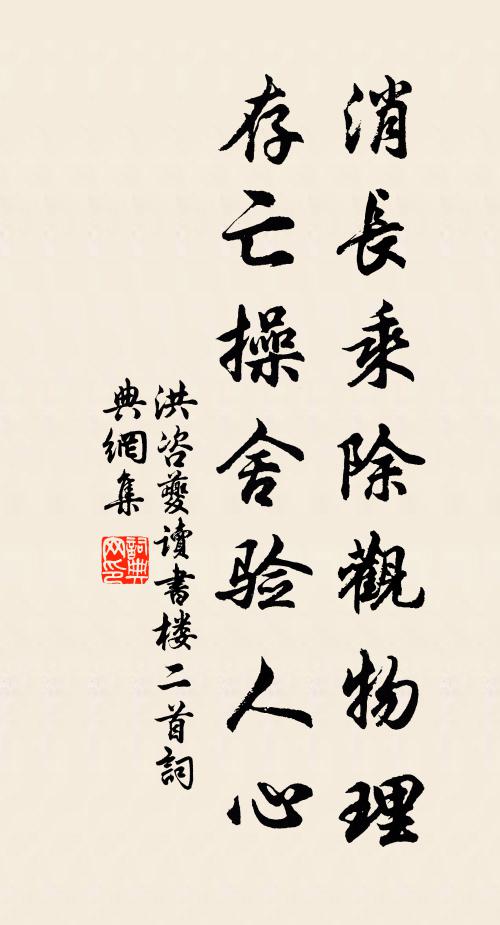 消長乘除觀物理
存亡操舍验人心
洪咨夔讀書楼二首詞
典網集
詞典
网印